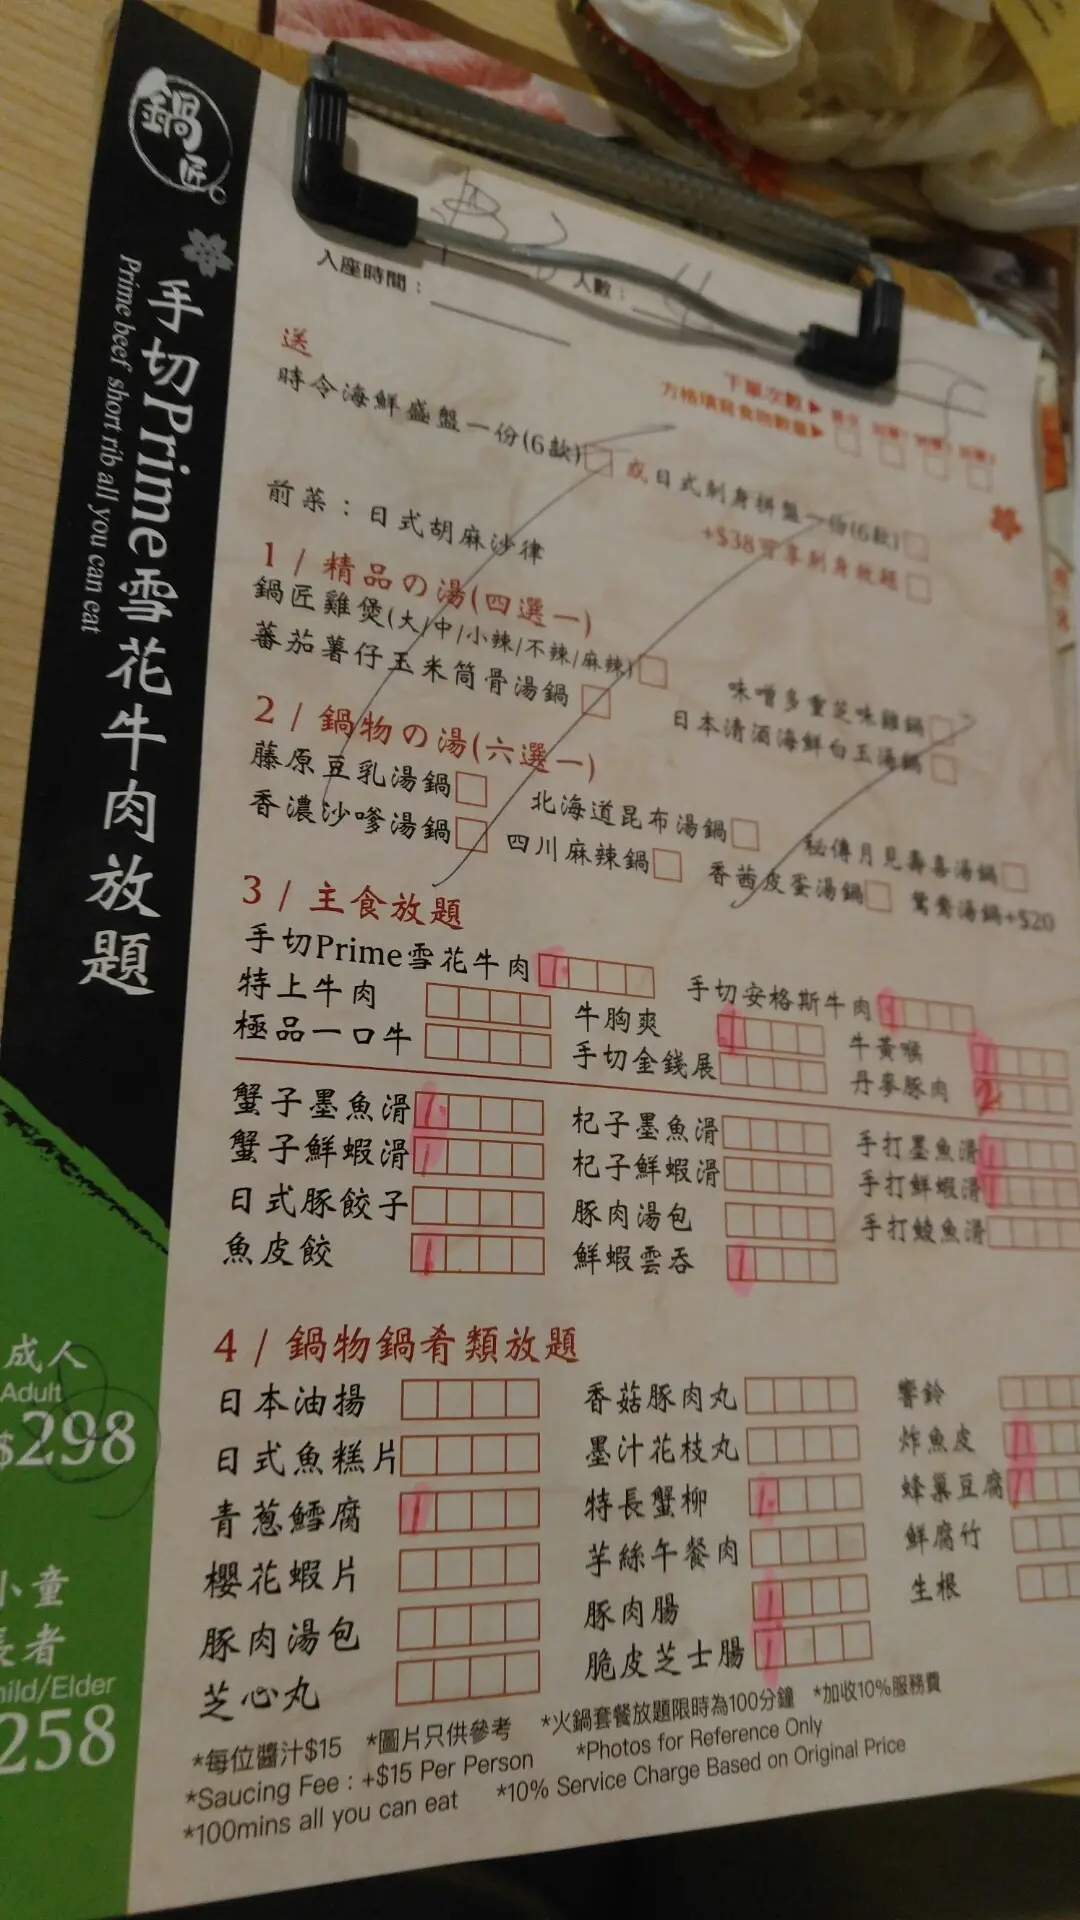 鍋匠
手切Prime雪花牛肉放題
Prime beef short rib all you can eat
入座時間：
人數： 4
送
下單次數▶
方格填寫食物數量▶
時令海鮮盛盤一份(6款)
或日式刺身拼盤一份(6款)
+$38可享刺身放題
前菜：日式胡麻沙律
1 / 精品の湯(四選一)
鍋匠雞煲(大/中/小辣/不辣/麻辣)
味噌多重芝味雞鍋
蕃茄薯仔玉米筒骨湯鍋
日本清酒海鮮白玉湯鍋
2 / 鍋物の湯(六選一)
藤原豆乳湯鍋
北海道昆布湯鍋
秘傳月見壽喜湯鍋
香濃沙嗲湯鍋
四川麻辣鍋
香茜皮蛋湯鍋
鴛鴦湯鍋+$20
3 / 主食放題
手切Prime雪花牛肉 1
手切安格斯牛肉 1
特上牛肉
牛胸爽 1
牛黃喉 1
極品一口牛
手切金錢展
丹麥豚肉 2
蟹子墨魚滑 1
杞子墨魚滑
手打墨魚滑 1
蟹子鮮蝦滑 1
杞子鮮蝦滑
手打鮮蝦滑 1
日式豚餃子
豚肉湯包
手打鯪魚滑
魚皮餃 1
鮮蝦雲吞 1
4 / 鍋物鍋肴類放題
日本油揚
香菇豚肉丸
響鈴
日式魚糕片
墨汁花枝丸
炸魚皮 1
青蔥鱈腐 1
特長蟹柳 1
蜂巢豆腐 1
櫻花蝦片
芋絲午餐肉
鮮腐竹
豚肉湯包
豚肉腸 1
生根
芝心丸
脆皮芝士腸 1
成人
Adult
$298
小童
長者
hild/Elder
258
*每位醬汁$15 *圖片只供參考 *火鍋套餐放題限時為100分鐘 *加收10%服務費
*Saucing Fee : +$15 Per Person *Photos for Reference Only
*100mins all you can eat *10% Service Charge Based on Original Price